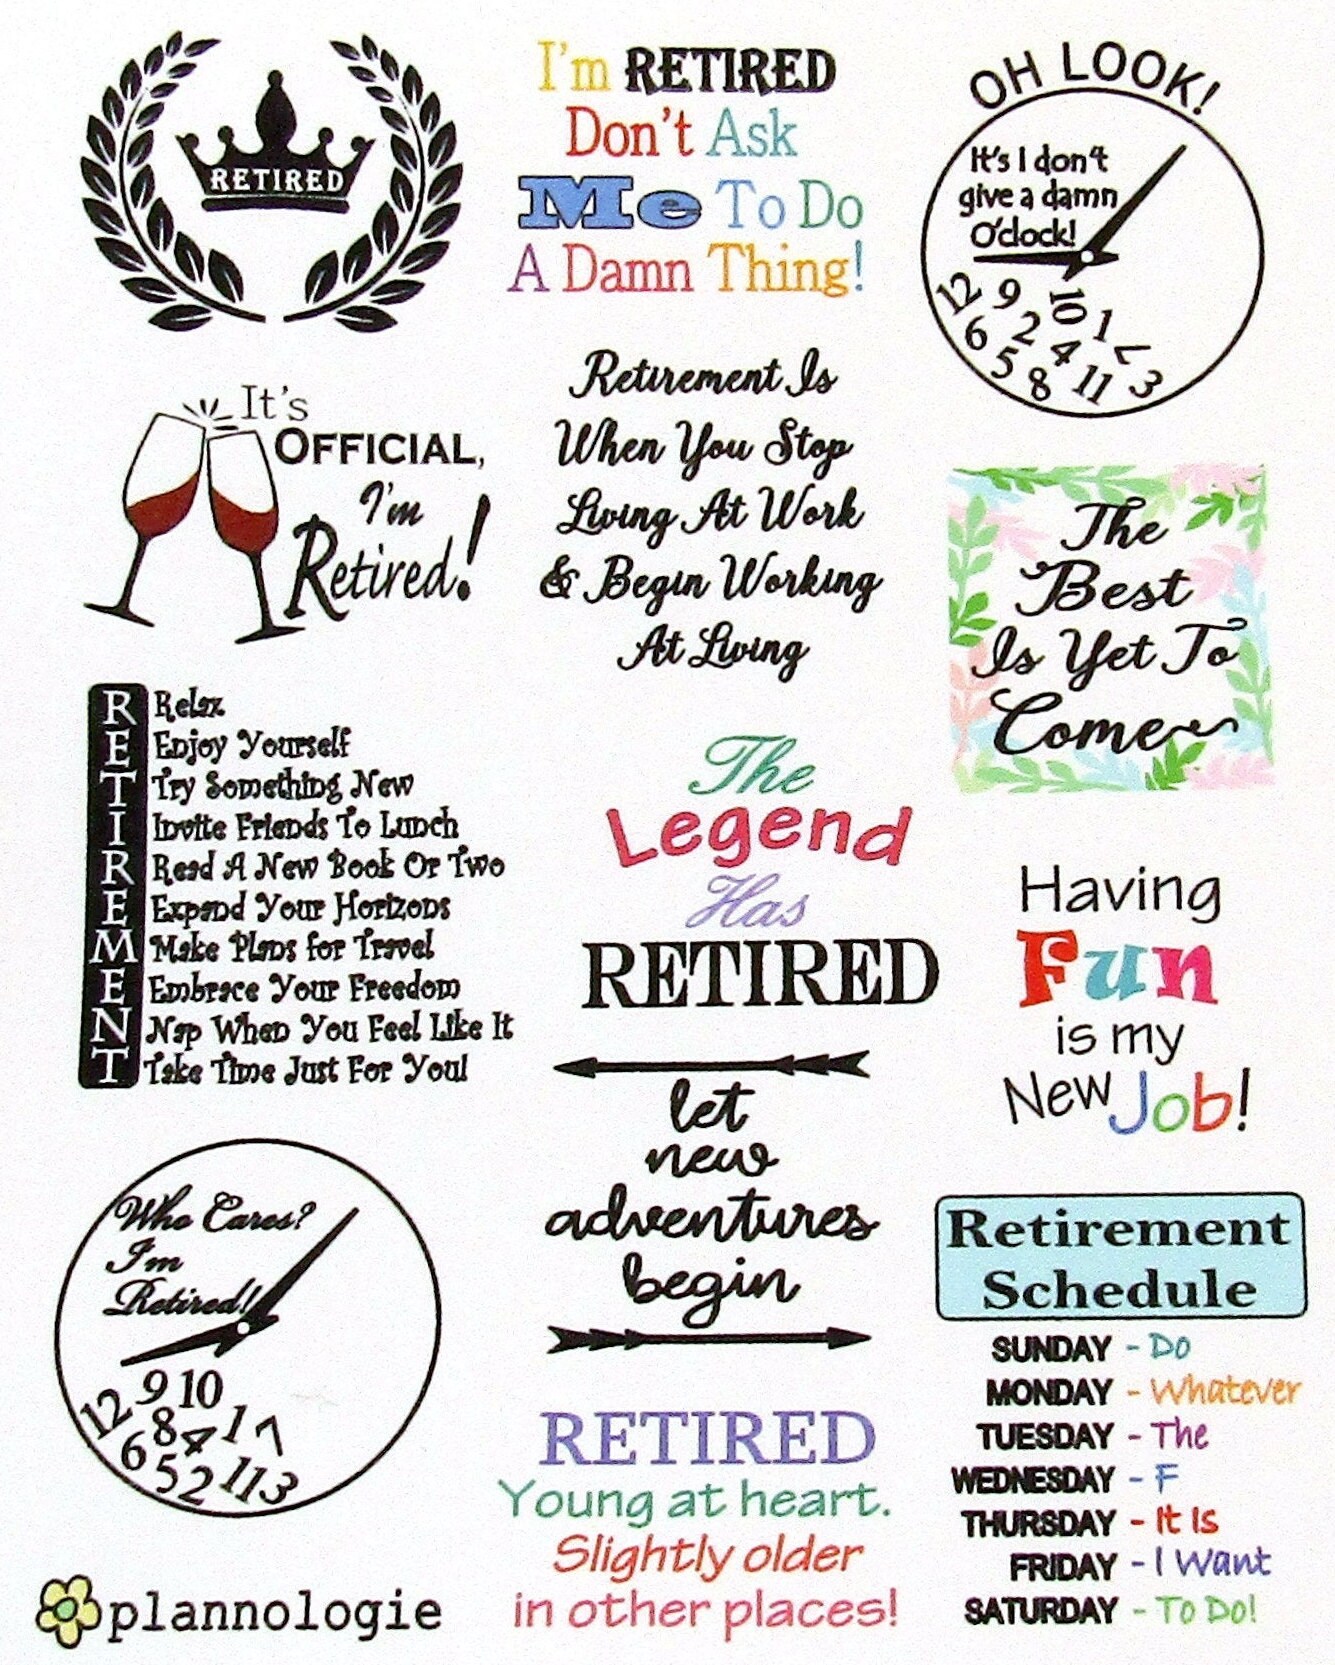 RETIRED
I'm RETIRED
Don't Ask
Me To Do
A Damn Thing!
OH LOOK!
It's I don't
give a damn
O'clock!
12 9 10 1
6 2 4 7
5 8 11 3
It's
OFFICIAL,
I'm
Retired!
Retirement Is
When You Stop
Living At Work
& Begin Working
At Living
The
Best
Is Yet To
Come
R Relax
E Enjoy Yourself
T Try Something New
I Invite Friends To Lunch
R Read A New Book Or Two
E Expand Your Horizons
M Make Plans for Travel
E Embrace Your Freedom
N Nap When You Feel Like It
T Take Time Just For You!
The
Legend
Has
RETIRED
Having
Fun
is my
New Job!
let
new
adventures
begin
Who Cares?
I'm
Retired!
9 10
12 8 4 1 7
6 5 2 11 3
Retirement
Schedule
SUNDAY - Do
MONDAY - Whatever
TUESDAY - The
WEDNESDAY - F
THURSDAY - It Is
FRIDAY - I Want
SATURDAY - To Do!
RETIRED
Young at heart.
Slightly older
in other places!
plannologie